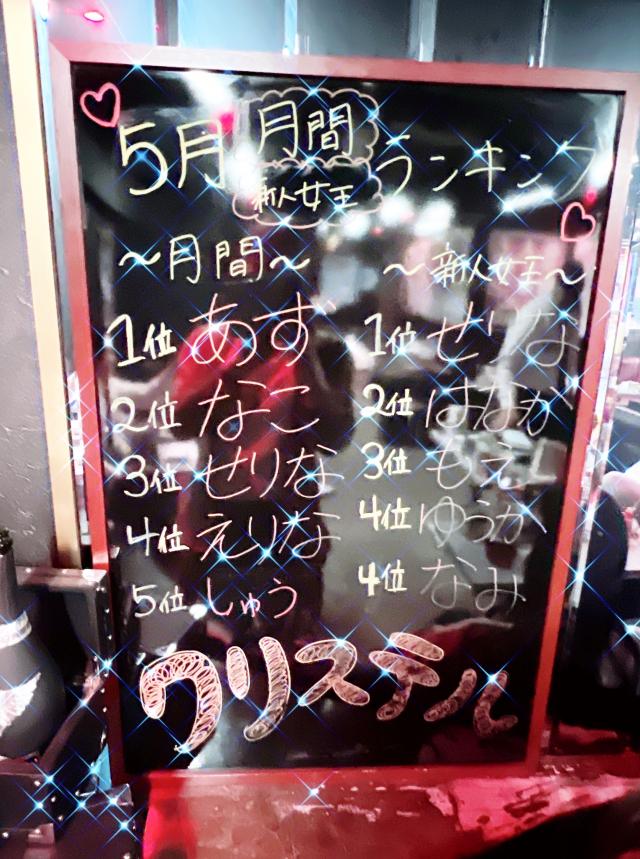 5月 月間 新人女王 ランキング
〜月間〜
1位 あず
2位 なこ
3位 せりな
4位 えりな
5位 しゅう
〜新人女王〜
1位 せりな
2位 はなか
3位 もえ
4位 ゆうか
4位 なみ
クリステル